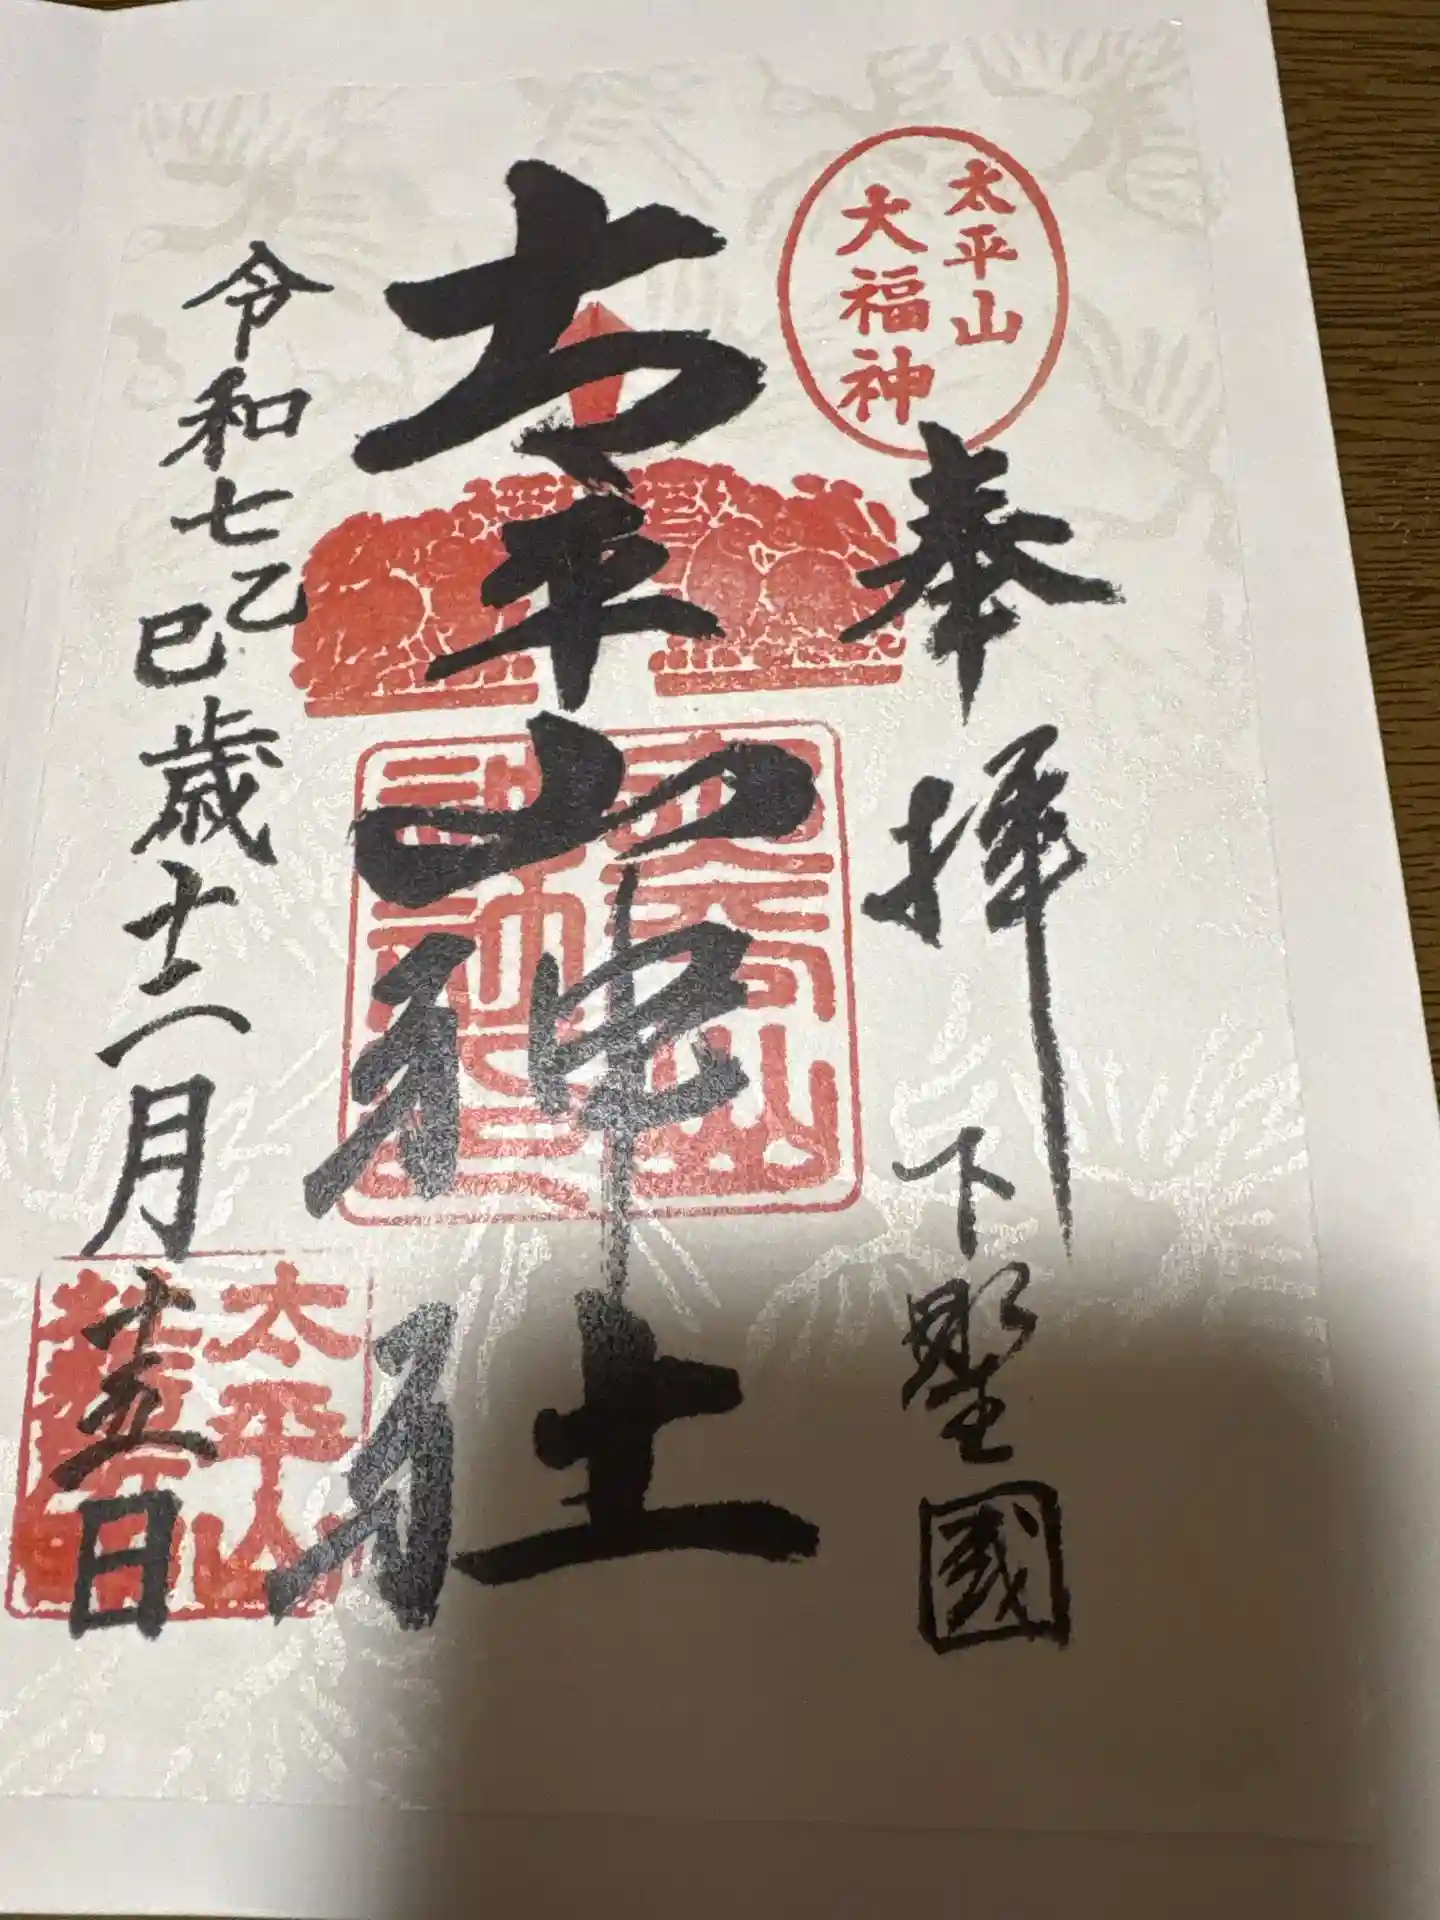 太平山
大福神
奉拝 下野國
太平山神社
令和七乙巳歳十二月十五日
太平山